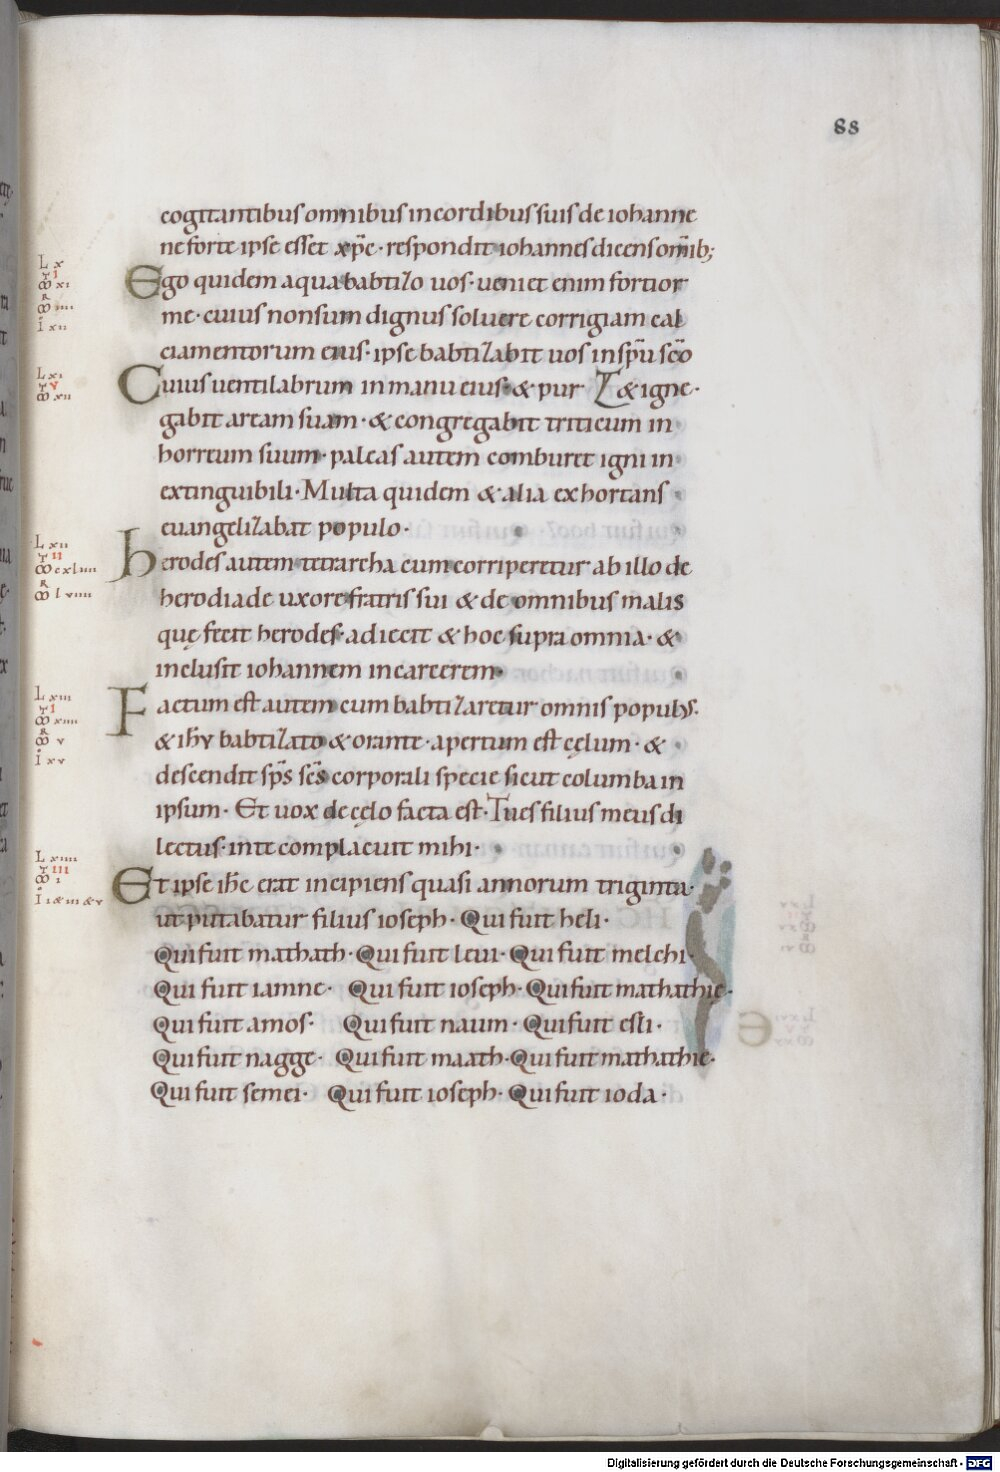 88
cogitantibus omnibus in cordibus suis de iohanne
ne forte ipse esset xp̅c · respondit iohannes dicens om̅ib;
Ego quidem aqua babtizo uos · ueniet enim fortior
me · cuius non sum dignus soluere corrigiam cal
ciamentorum eius · ipse babtizabit uos in sp̅u sc̅o
Cuius uentilabrum in manu eius · & pur & igne ·
gabit aream suam · & congregabit triticum in
horreum suum · paleas autem comburet igni in
extinguibili · Multa quidem & alia exhortans
euangelizabat populo ·
herodes autem tetrarcha cum corriperetur ab illo de
herodiade uxore fratris sui & de omnibus malis
quę fecit herodes · adiecit & hoc supra omnia · &
inclusit iohannem in carcerem ·
Factum est autem cum babtizaretur omnis populus ·
& ih̅u babtizato & orante · apertum est cęlum · &
descendit sp̅s sc̅s corporali specie sicut columba in
ipsum · Et uox de cęlo facta est · Tu es filius meus di
lectus · in te complacuit mihi ·
Et ipse ih̅c erat incipiens quasi annorum triginta ·
ut putabatur filius ioseph · Qui fuit heli ·
Qui fuit mathath · Qui fuit leui · Qui fuit melchi ·
Qui fuit iamne · Qui fuit ioseph · Qui fuit mathathie ·
Qui fuit amos · Qui fuit naum · Qui fuit esli ·
Qui fuit nagge · Qui fuit maath · Qui fuit mathathie ·
Qui fuit semei · Qui fuit ioseph · Qui fuit ioda ·
L x
I
xi
R
iiii
I xii
L xi
V
xii
L xii
II
cxliiii
R
L xiii
I
xiiii
R
v
I xv
L xiiii
III
i
I i & iii & v
Digitalisierung gefördert durch die Deutsche Forschungsgemeinschaft - DFG